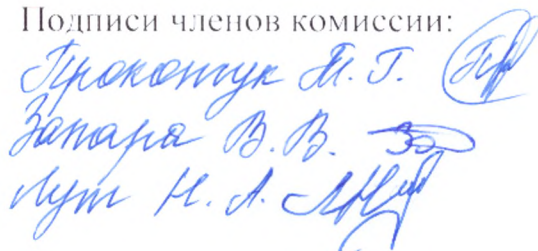 Подписи членов комиссии:
Прокопчук Т. Г.
Запара В. В.
Лут Н. А.